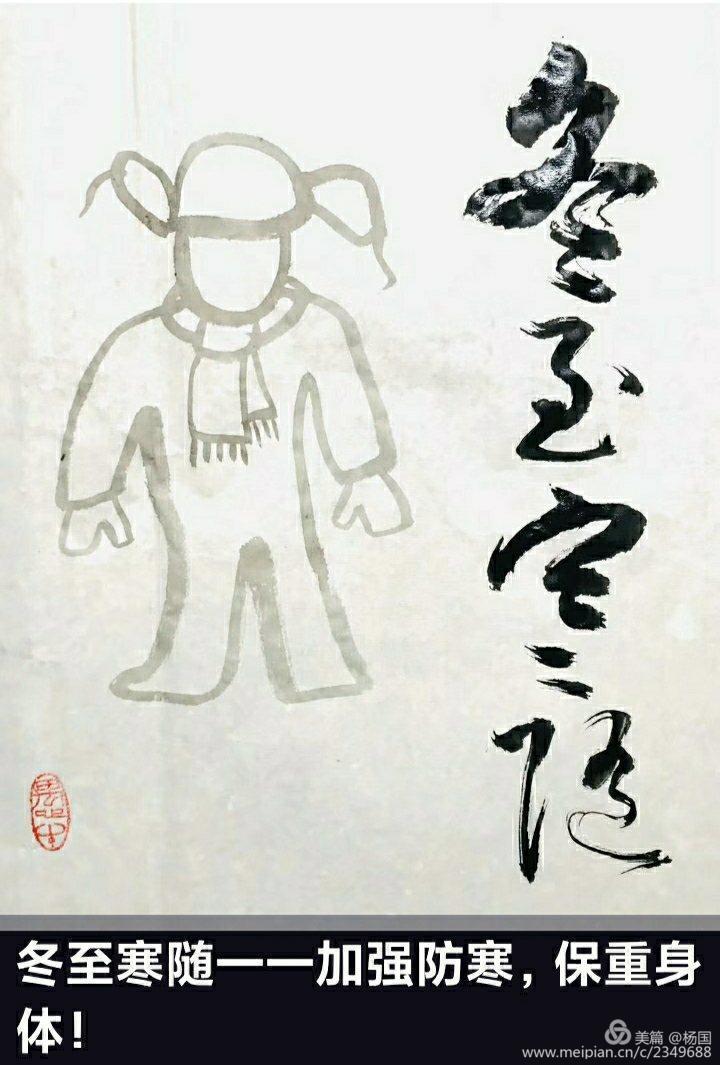 冬至寒随
冬至寒随一一加强防寒，保重身
体！
美篇 @杨国
www.meipian.cn/c/2349688